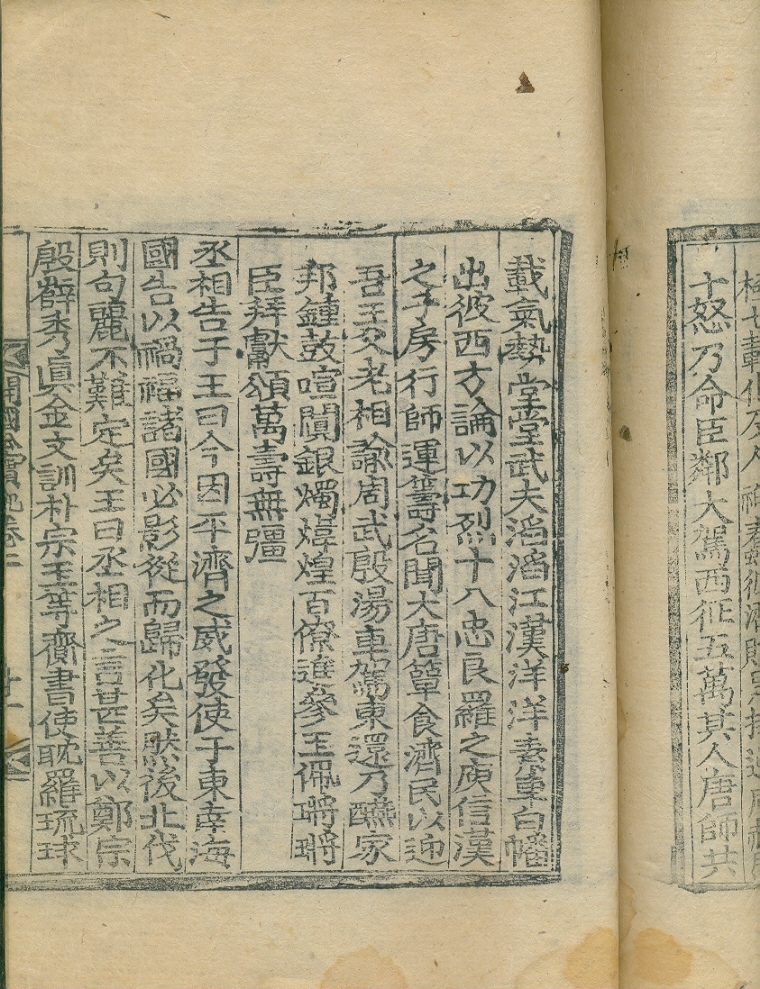 十怒乃命臣鄰大駕西征五萬其人唐師共
載氣勢堂堂武夫滔滔江漢洋洋素車白幡
出彼西方論以功烈十八忠良羅之庾信漢
之子房行師運籌名聞大唐簞食濟民以迎
吾王父老相諭周武殷湯車駕東還乃醼家
邦鍾鼓喧闐銀燭煒煌百僚進參玉佩瑲瑲
臣拜獻頌萬壽無疆
丞相告于王曰今因平濟之威發使于東幸海
國告以禍福諸國必影從而歸化矣然後北伐
則句麗不難定矣王曰丞相之言甚善以鄭宗
殷薛秀眞金文訓朴宗玉等賫書使耽羅琉球
開國公實記卷二 十一